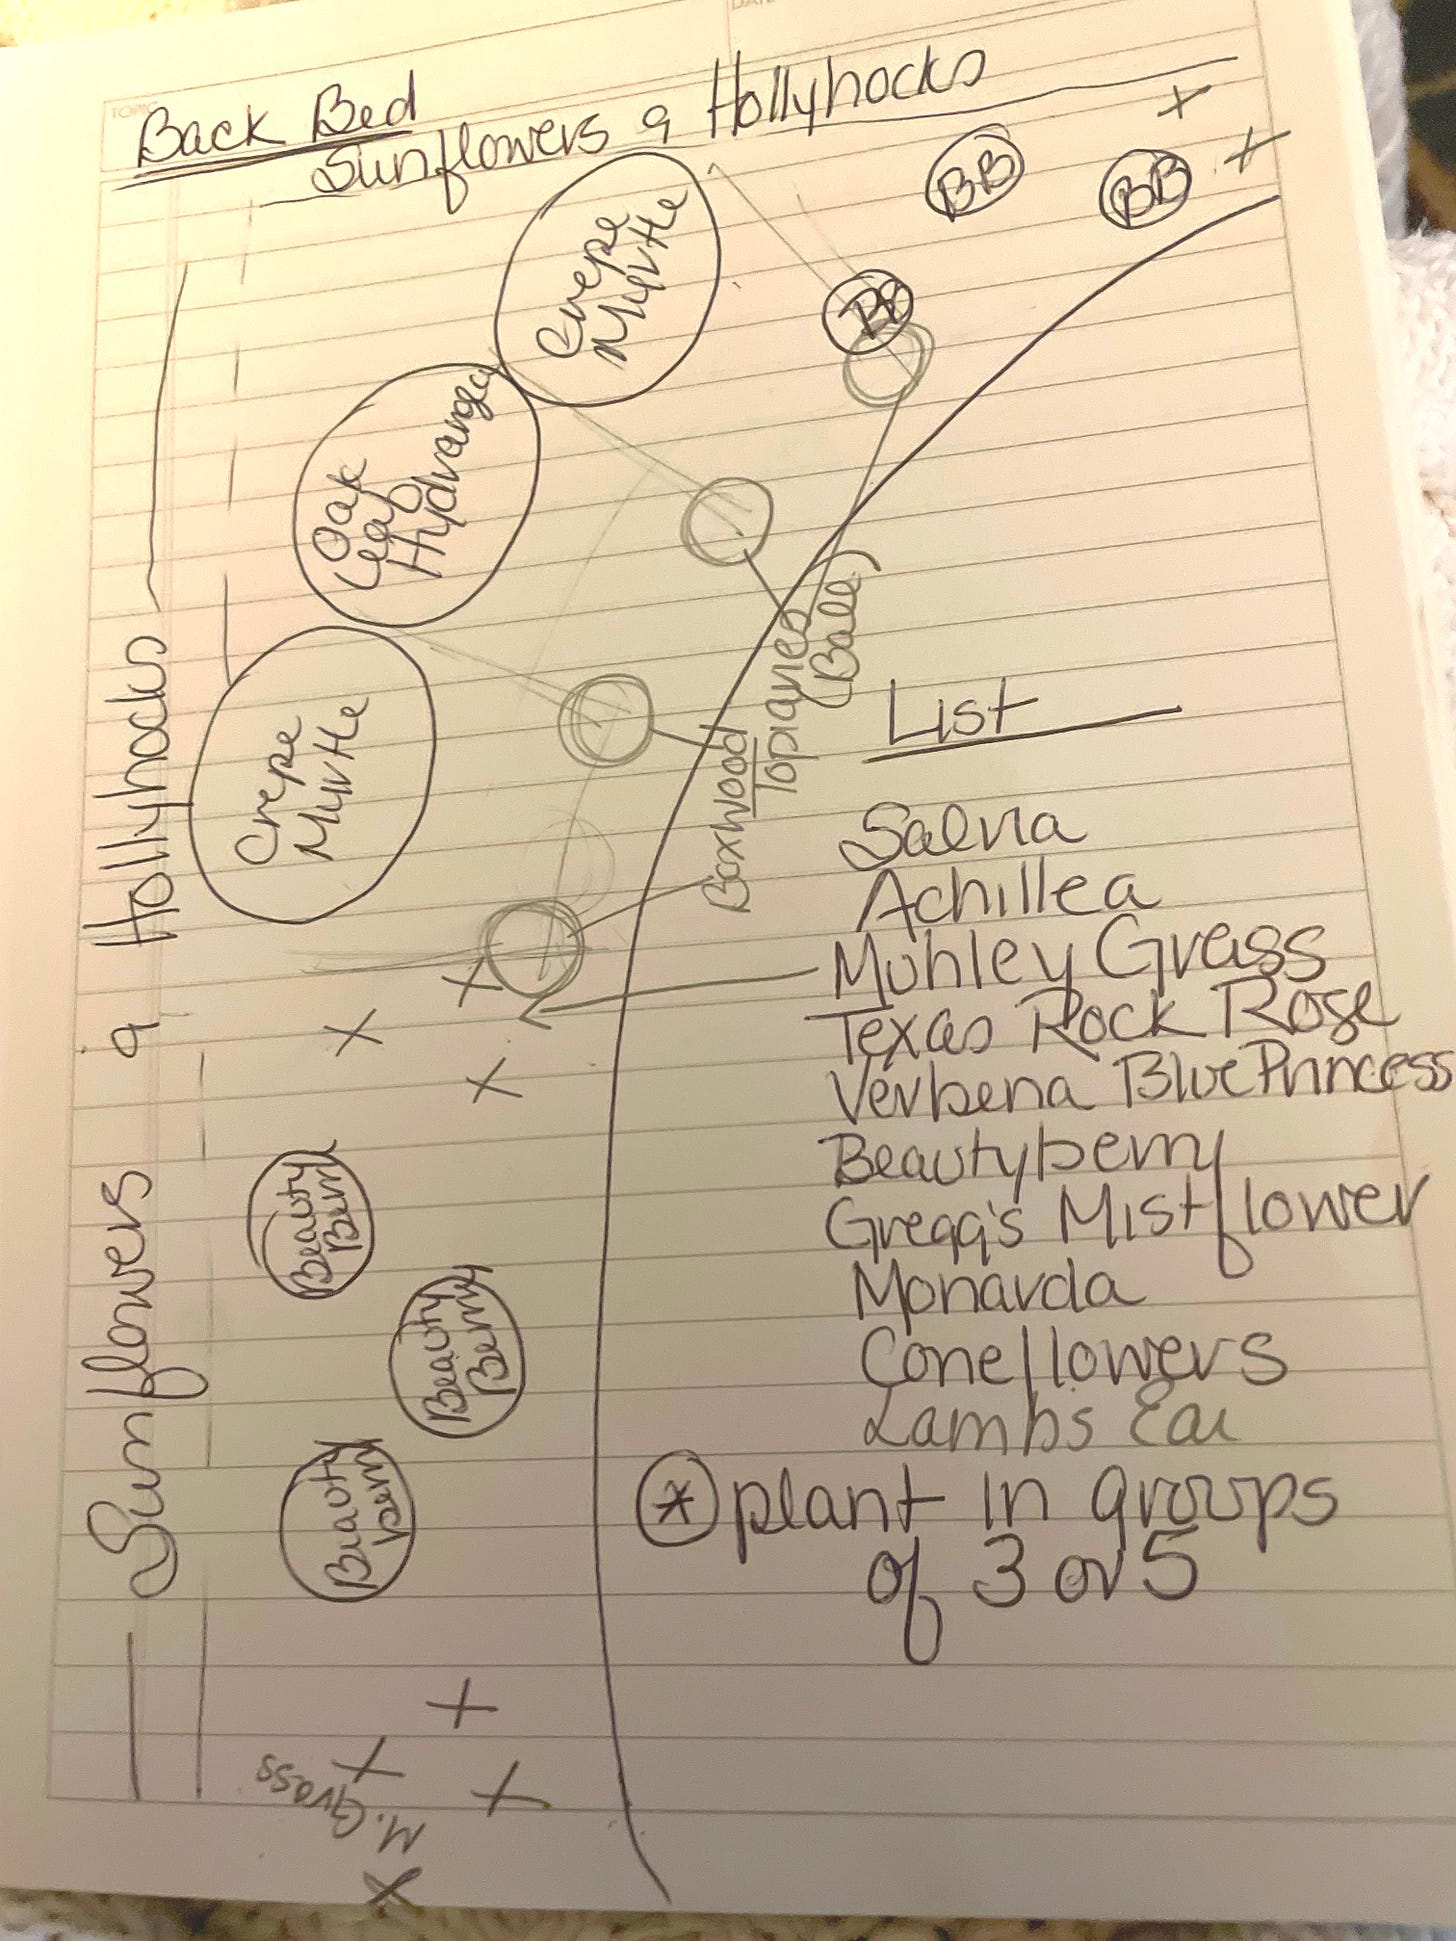 Back Bed
Sunflowers & Hollyhocks
BB
BB
BB
Crepe
Myrtle
Oak
Leaf
Hydrangea
Crepe
Myrtle
Sunflowers & Hollyhocks
Boxwood
Topiaries
(Ball)
Beauty
Berry
Beauty
Berry
Beauty
berry
M. Grass
List
Salvia
Achillea
Muhley Grass
Texas Rock Rose
Verbena Blue Princess
Beautyberry
Gregg's Mistflower
Monarda
Coneflowers
Lambs Ear
* plant in groups
of 3 or 5